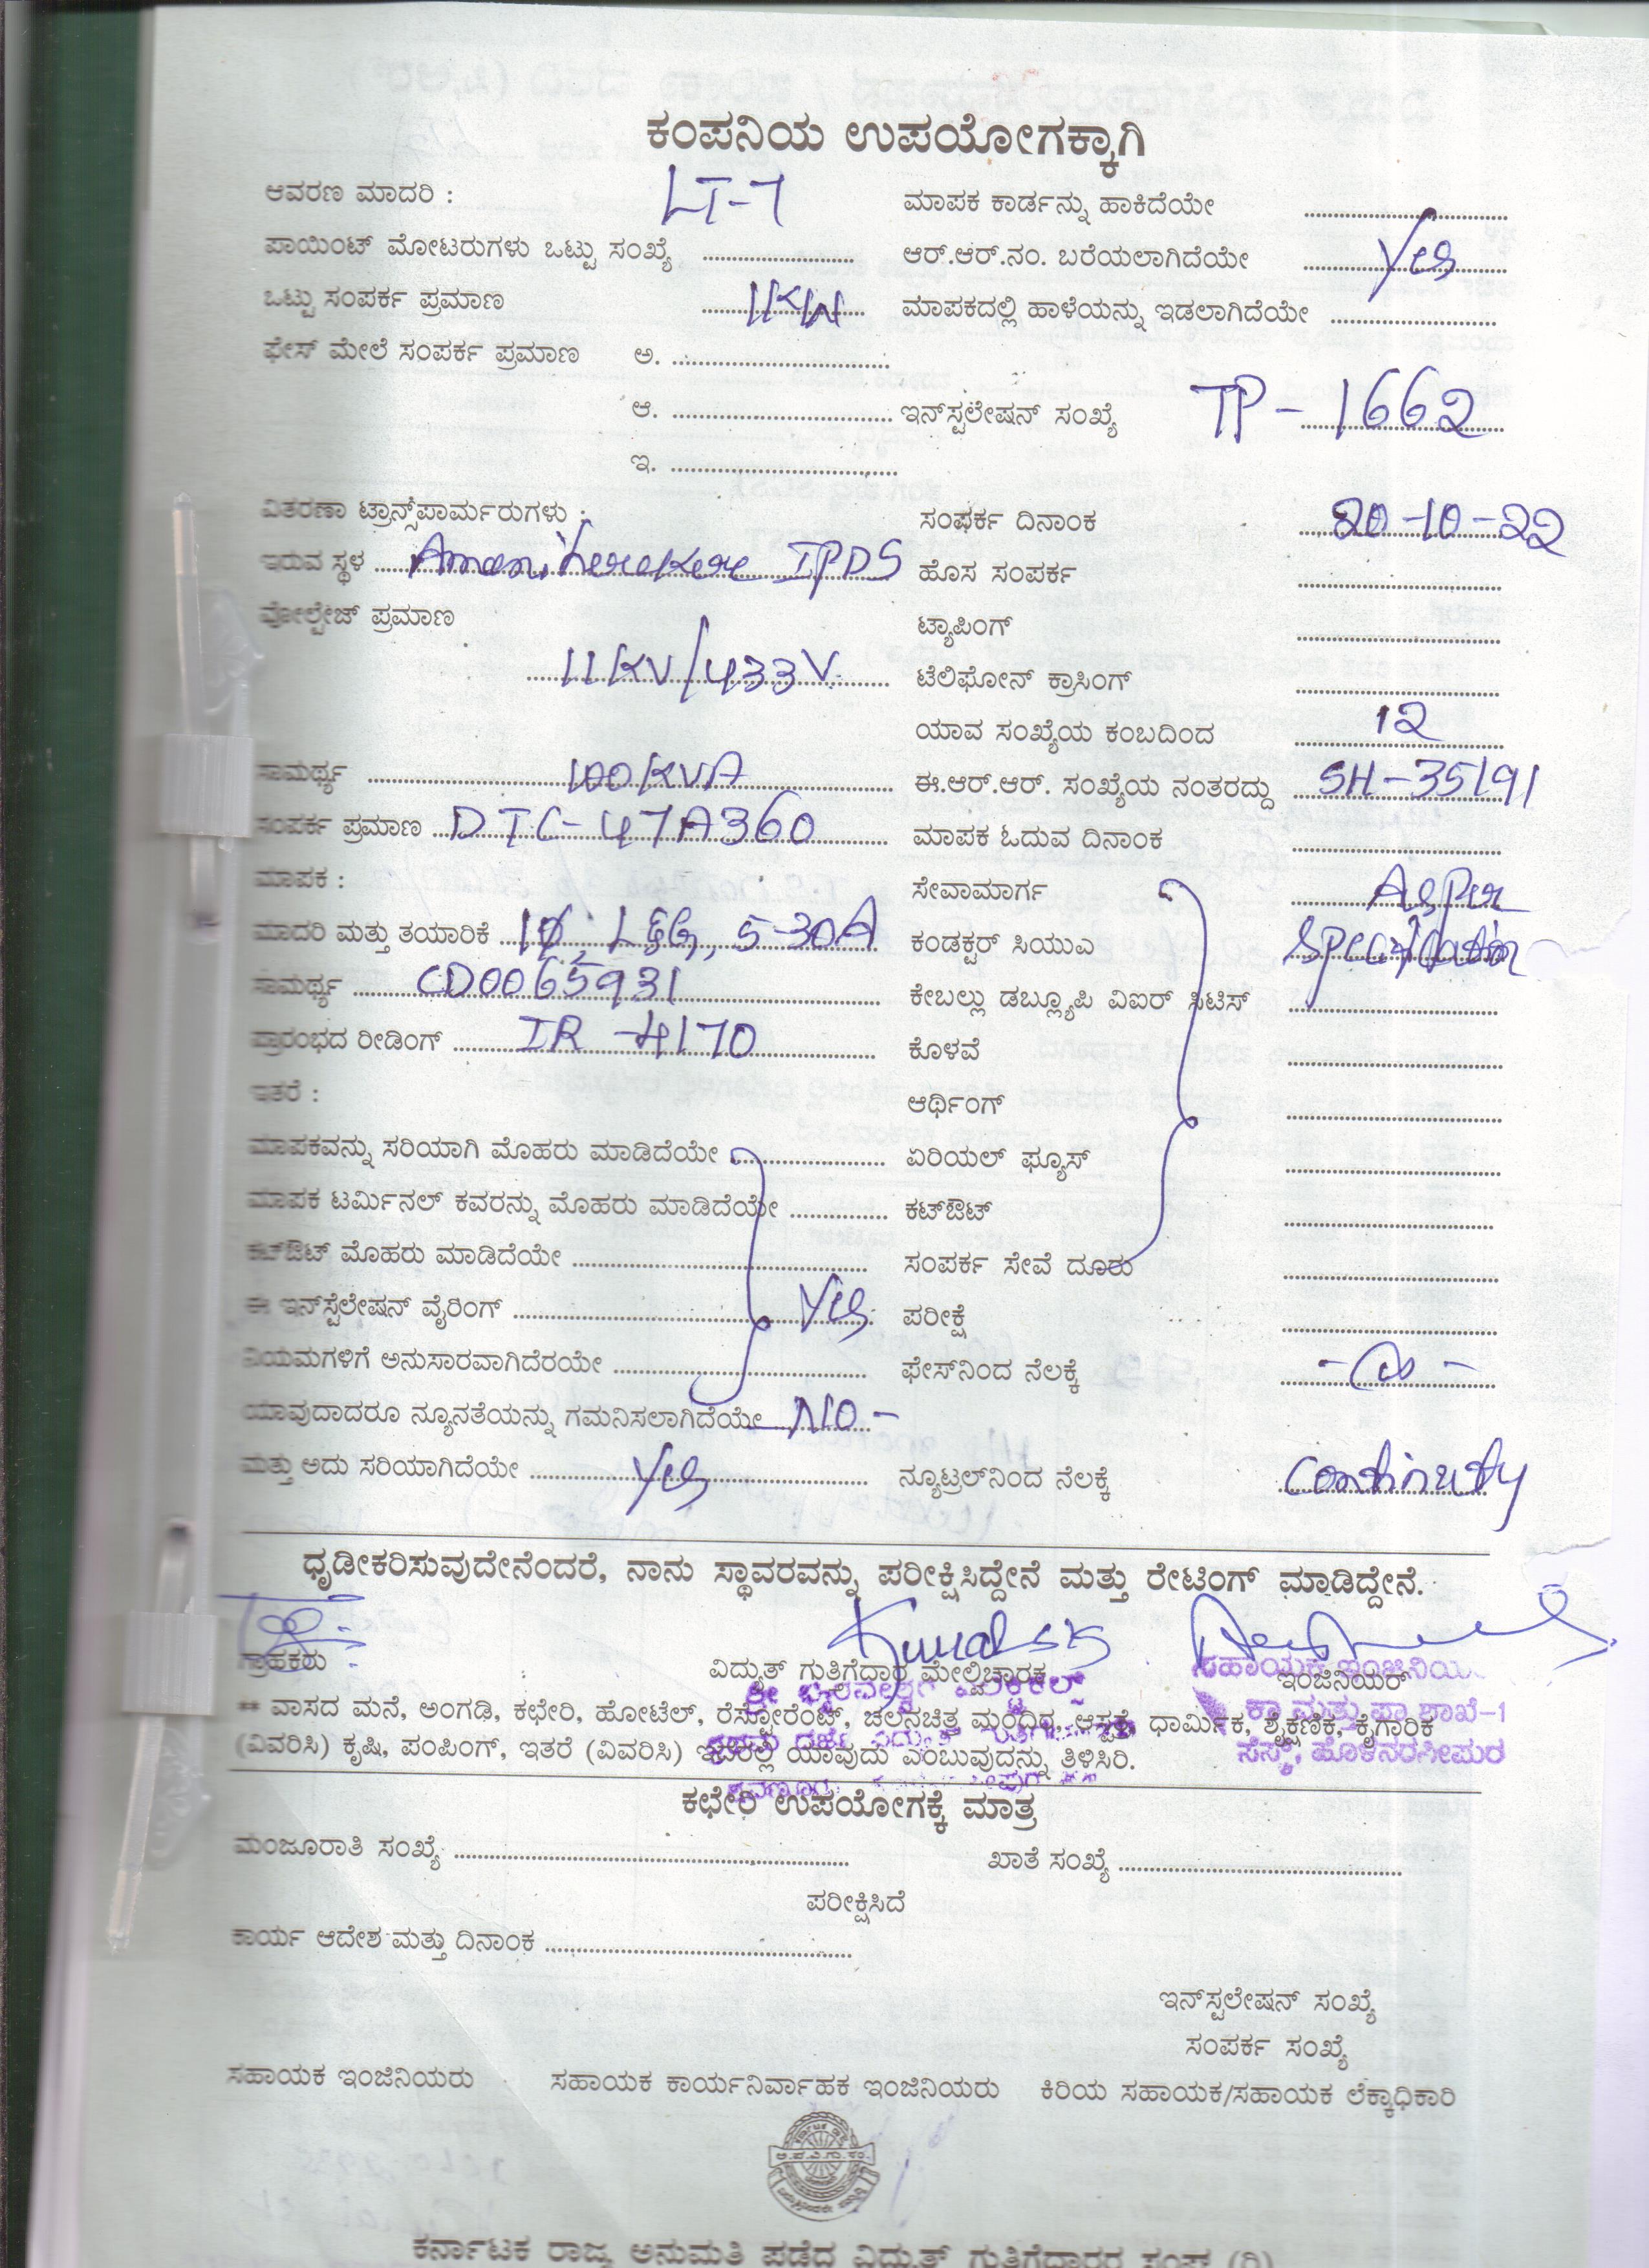 ಕಂಪನಿಯ ಉಪಯೋಗಕ್ಕಾಗಿ
ಆವರಣ ಮಾದರಿ : LT-7 ಮಾಪಕ ಕಾರ್ಡನ್ನು ಹಾಕಿದೆಯೇ
ಪಾಯಿಂಟ್ ಮೋಟರುಗಳು ಒಟ್ಟು ಸಂಖ್ಯೆ ಆರ್.ಆರ್.ನಂ. ಬರೆಯಲಾಗಿದೆಯೇ Yes
ಒಟ್ಟು ಸಂಪರ್ಕ ಪ್ರಮಾಣ 11KW ಮಾಪಕದಲ್ಲಿ ಹಾಳೆಯನ್ನು ಇಡಲಾಗಿದೆಯೇ
ಫೇಸ್ ಮೇಲೆ ಸಂಪರ್ಕ ಪ್ರಮಾಣ ಅ.
ಆ. ಇನ್‌ಸ್ಟಲೇಷನ್ ಸಂಖ್ಯೆ TP-1662
ಇ.
ವಿತರಣಾ ಟ್ರಾನ್ಸ್‌ಪಾರ್ಮರುಗಳು : ಸಂಪರ್ಕ ದಿನಾಂಕ 20-10-22
ಇರುವ ಸ್ಥಳ IPDS ಹೊಸ ಸಂಪರ್ಕ
ವೋಲ್ಟೇಜ್ ಪ್ರಮಾಣ ಟ್ಯಾಪಿಂಗ್
11KV/433V ಟೆಲಿಫೋನ್ ಕ್ರಾಸಿಂಗ್
ಯಾವ ಸಂಖ್ಯೆಯ ಕಂಬದಿಂದ 12
ಸಾಮರ್ಥ್ಯ 100KVA ಈ.ಆರ್.ಆರ್. ಸಂಖ್ಯೆಯ ನಂತರದ್ದು SH-35191
ಸಂಪರ್ಕ ಪ್ರಮಾಣ DTC-47A360 ಮಾಪಕ ಓದುವ ದಿನಾಂಕ
ಮಾಪಕ : ಸೇವಾಮಾರ್ಗ As Per
ಮಾದರಿ ಮತ್ತು ತಯಾರಿಕೆ 1Ø, L&G, 5-30A ಕಂಡಕ್ಟರ್ ಸಿಯುಎ Specification
ಸಾಮರ್ಥ್ಯ CD0065931 ಕೇಬಲ್ಲು ಡಬ್ಲ್ಯೂಪಿ ವಿಐರ್ ಸಿಟಿಸ್
ಪ್ರಾರಂಭದ ರೀಡಿಂಗ್ IR-4170 ಕೊಳವೆ
ಇತರೆ : ಆರ್ಥಿಂಗ್
ಮಾಪಕವನ್ನು ಸರಿಯಾಗಿ ಮೊಹರು ಮಾಡಿದೆಯೇ ಏರಿಯಲ್ ಫ್ಯೂಸ್
ಮಾಪಕ ಟರ್ಮಿನಲ್ ಕವರನ್ನು ಮೊಹರು ಮಾಡಿದೆಯೇ ಕಟ್‌ಔಟ್
ಕಟ್‌ಔಟ್ ಮೊಹರು ಮಾಡಿದೆಯೇ ಸಂಪರ್ಕ ಸೇವೆ ದೂರು
ಈ ಇನ್‌ಸ್ಟೆಲೇಷನ್ ವೈರಿಂಗ್ Yes ಪರೀಕ್ಷೆ
ನಿಯಮಗಳಿಗೆ ಅನುಸಾರವಾಗಿದೆರಯೇ ಫೇಸ್‌ನಿಂದ ನೆಲಕ್ಕೆ
ಯಾವುದಾದರೂ ನ್ಯೂನತೆಯನ್ನು ಗಮನಿಸಲಾಗಿದೆಯೇ NO-
ಮತ್ತು ಅದು ಸರಿಯಾಗಿದೆಯೇ Yes ನ್ಯೂಟ್ರಲ್‌ನಿಂದ ನೆಲಕ್ಕೆ continuty
ಧೃಡೀಕರಿಸುವುದೇನೆಂದರೆ, ನಾನು ಸ್ಥಾವರವನ್ನು ಪರೀಕ್ಷಿಸಿದ್ದೇನೆ ಮತ್ತು ರೇಟಿಂಗ್ ಮಾಡಿದ್ದೇನೆ.
ಗ್ರಾಹಕರು ವಿದ್ಯುತ್ ಗುತ್ತಿಗೆದಾರ ಮೇಲ್ವಿಚಾರಕ ಇಂಜಿನಿಯರ್
** ವಾಸದ ಮನೆ, ಅಂಗಡಿ, ಕಛೇರಿ, ಹೋಟೆಲ್, ರೆಸ್ಟೋರೆಂಟ್, ಚಲನಚಿತ್ರ ಮಂದಿರ, ಆಸ್ಪತ್ರೆ, ಧಾರ್ಮಿಕ, ಶೈಕ್ಷಣಿಕ, ಕೈಗಾರಿಕೆ
(ವಿವರಿಸಿ) ಕೃಷಿ, ಪಂಪಿಂಗ್, ಇತರೆ (ವಿವರಿಸಿ) ಇವರಲ್ಲಿ ಯಾವುದು ಎಂಬುವುದನ್ನು ತಿಳಿಸಿರಿ.
ಸಹಾಯಕ ಇಂಜಿನಿಯರ್
ಕಾ ಮತ್ತು ಪಾ ಶಾಖೆ-1
ಸೆಸ್ಕ್, ಹೊಳೆನರಸೀಪುರ
ಕಛೇರಿ ಉಪಯೋಗಕ್ಕೆ ಮಾತ್ರ
ಮಂಜೂರಾತಿ ಸಂಖ್ಯೆ ಖಾತೆ ಸಂಖ್ಯೆ
ಪರೀಕ್ಷಿಸಿದೆ
ಕಾರ್ಯ ಆದೇಶ ಮತ್ತು ದಿನಾಂಕ
ಇನ್‌ಸ್ಟಲೇಷನ್ ಸಂಖ್ಯೆ
ಸಂಪರ್ಕ ಸಂಖ್ಯೆ
ಸಹಾಯಕ ಇಂಜಿನಿಯರು ಸಹಾಯಕ ಕಾರ್ಯನಿರ್ವಾಹಕ ಇಂಜಿನಿಯರು ಕಿರಿಯ ಸಹಾಯಕ/ಸಹಾಯಕ ಲೆಕ್ಕಾಧಿಕಾರಿ
ಕರ್ನಾಟಕ ರಾಜ್ಯ ಅನುಮತಿ ಪಡೆದ ವಿದ್ಯುತ್ ಗುತ್ತಿಗೆದಾರರ ಸಂಘ (ರಿ)